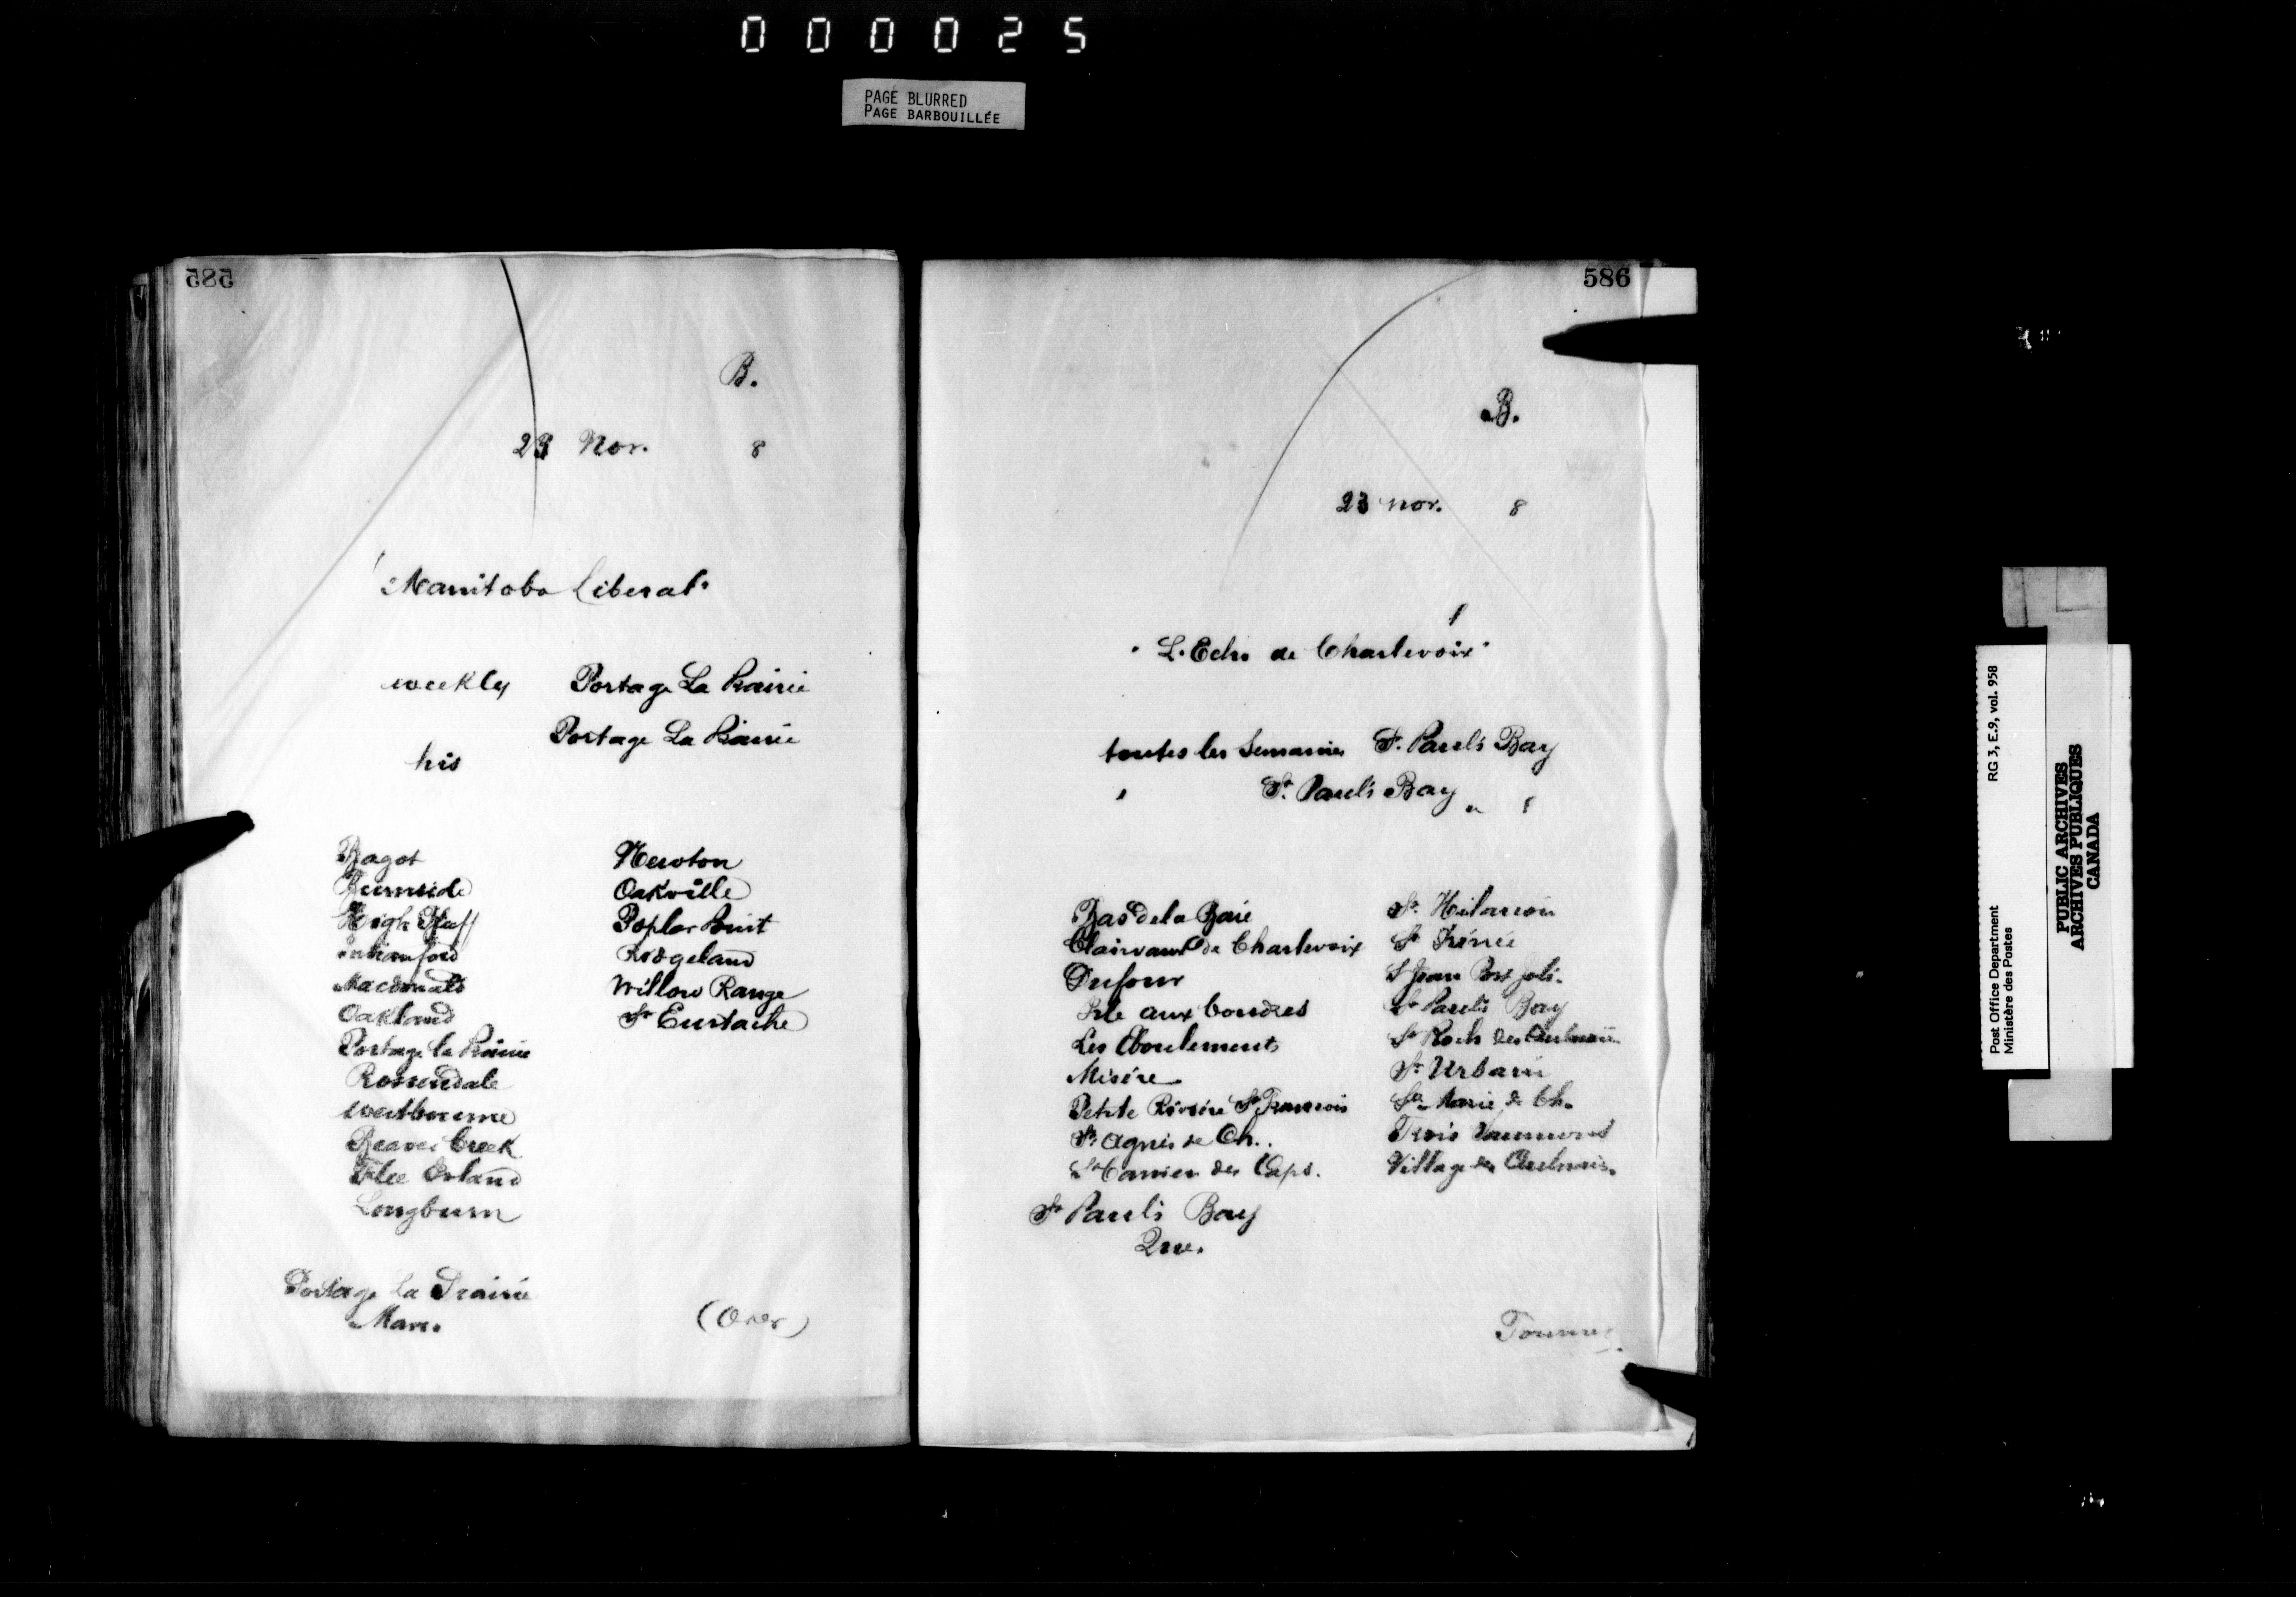 000025
PAGE BLURRED
PAGE BARBOUILLÉE
585
B.
23 Nov. 8
"Manitoba Liberal"
weekly Portage La Prairie
Portage La Prairie
his
Bagot Newton
Burnside Oakville
High Bluff Poplar Point
Indianford Ridgeland
Macdonald Willow Range
Oakland St Eustache
Portage la Prairie
Rossendale
Westbourne
Beaver Creek
Flee Island
Longburn
Portage La Prairie
Man.
(Over)
586
B.
23 Nov. 8
"L'Echo de Charlevoix"
toutes les Semaines St. Paul's Bay
St. Paul's Bay
Bas de la Baie St. Hilarion
Clairvaux de Charlevoix St Irénée
Dufour St Jean Port Joli.
Isle aux Coudres St Paul's Bay
Les Eboulements St Roch des Aulnaies
Misère St. Urbain
Petite Rivière St Francois Ste Marie de Ch.
St. Agnès de Ch. Trois Saumons
St Cassien des Caps. Village des Aulnaies.
St Paul's Bay
Que.
Tournez
Post Office Department
Ministère des Postes
RG 3, E.9, vol. 958
PUBLIC ARCHIVES
ARCHIVES PUBLIQUES
CANADA